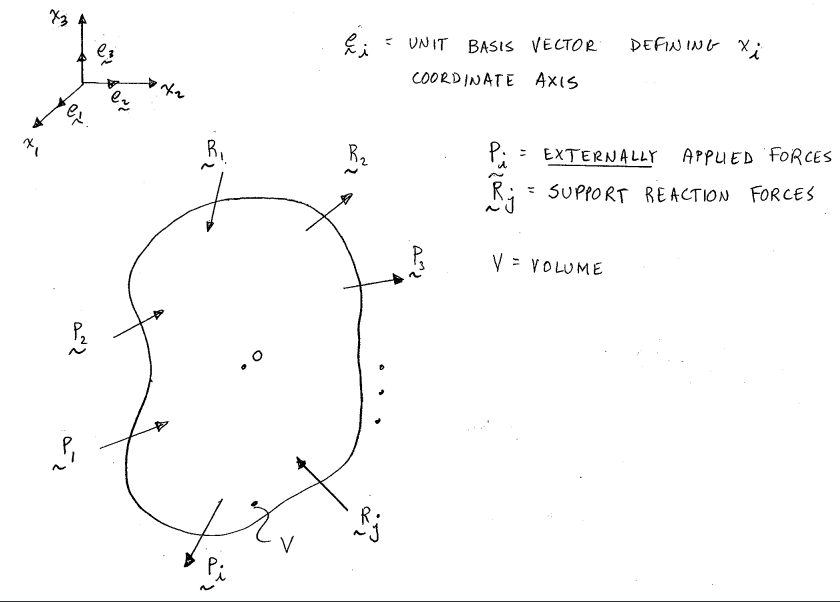 x₃
e₃
e₂
x₂
e₁
x₁
e_i = UNIT BASIS VECTOR DEFINING x_i
COORDINATE AXIS
P_i = EXTERNALLY APPLIED FORCES
R_j = SUPPORT REACTION FORCES
V = VOLUME
R₁
R₂
P₃
P₂
O
P₁
R_j
V
P_i